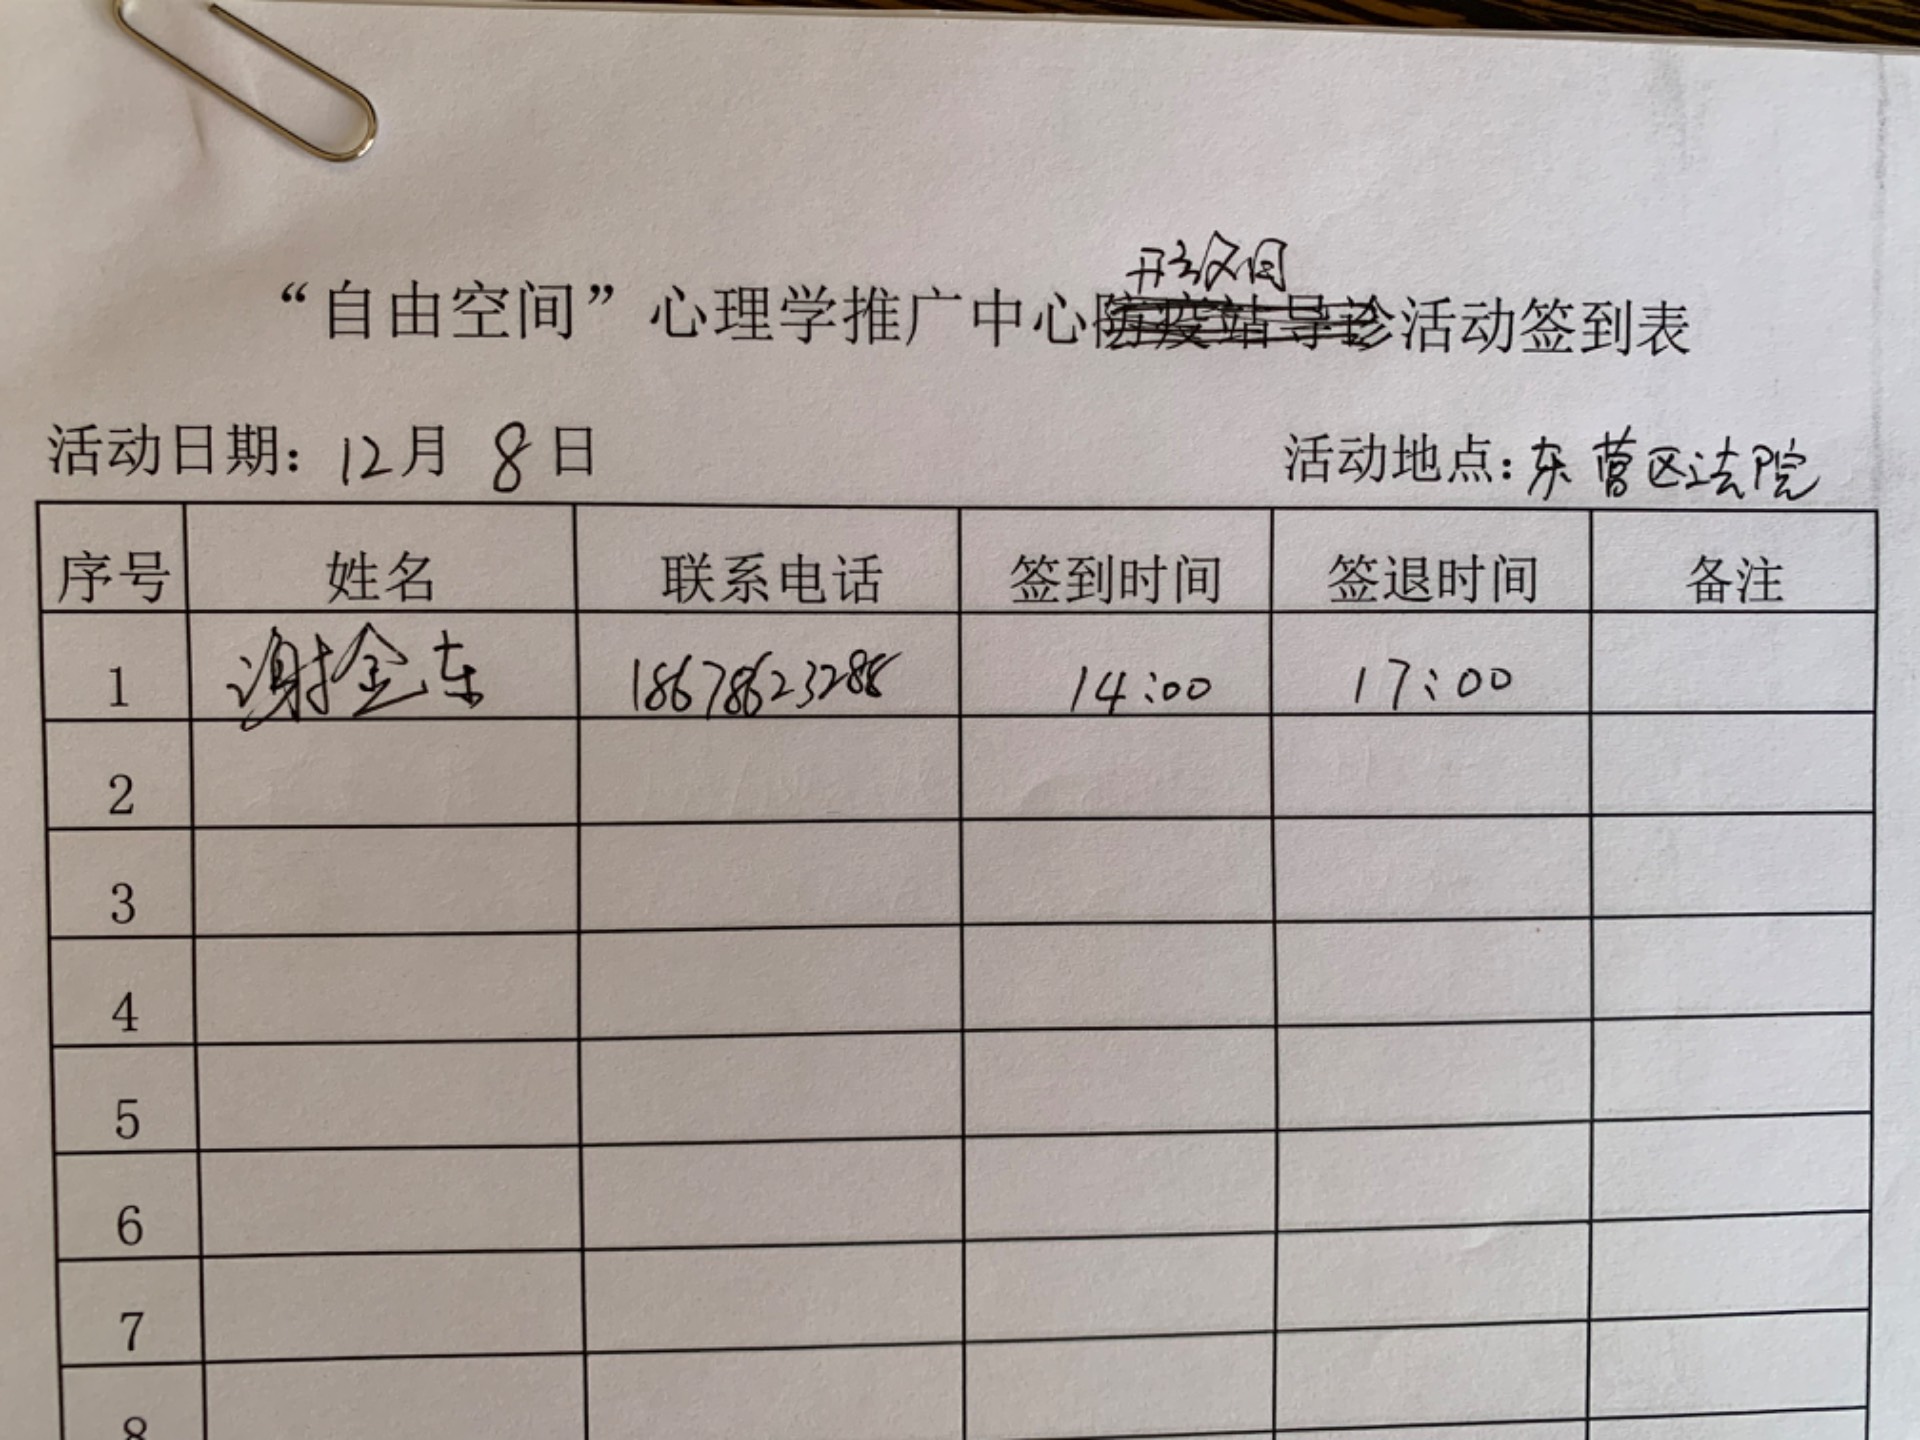 开放日
“自由空间”心理学推广中心防疫站导诊活动签到表
活动日期：12月 8 日 活动地点：东营区法院
序号 姓名 联系电话 签到时间 签退时间 备注
1 谢金东 18678623288 14:00 17:00
2
3
4
5
6
7
8